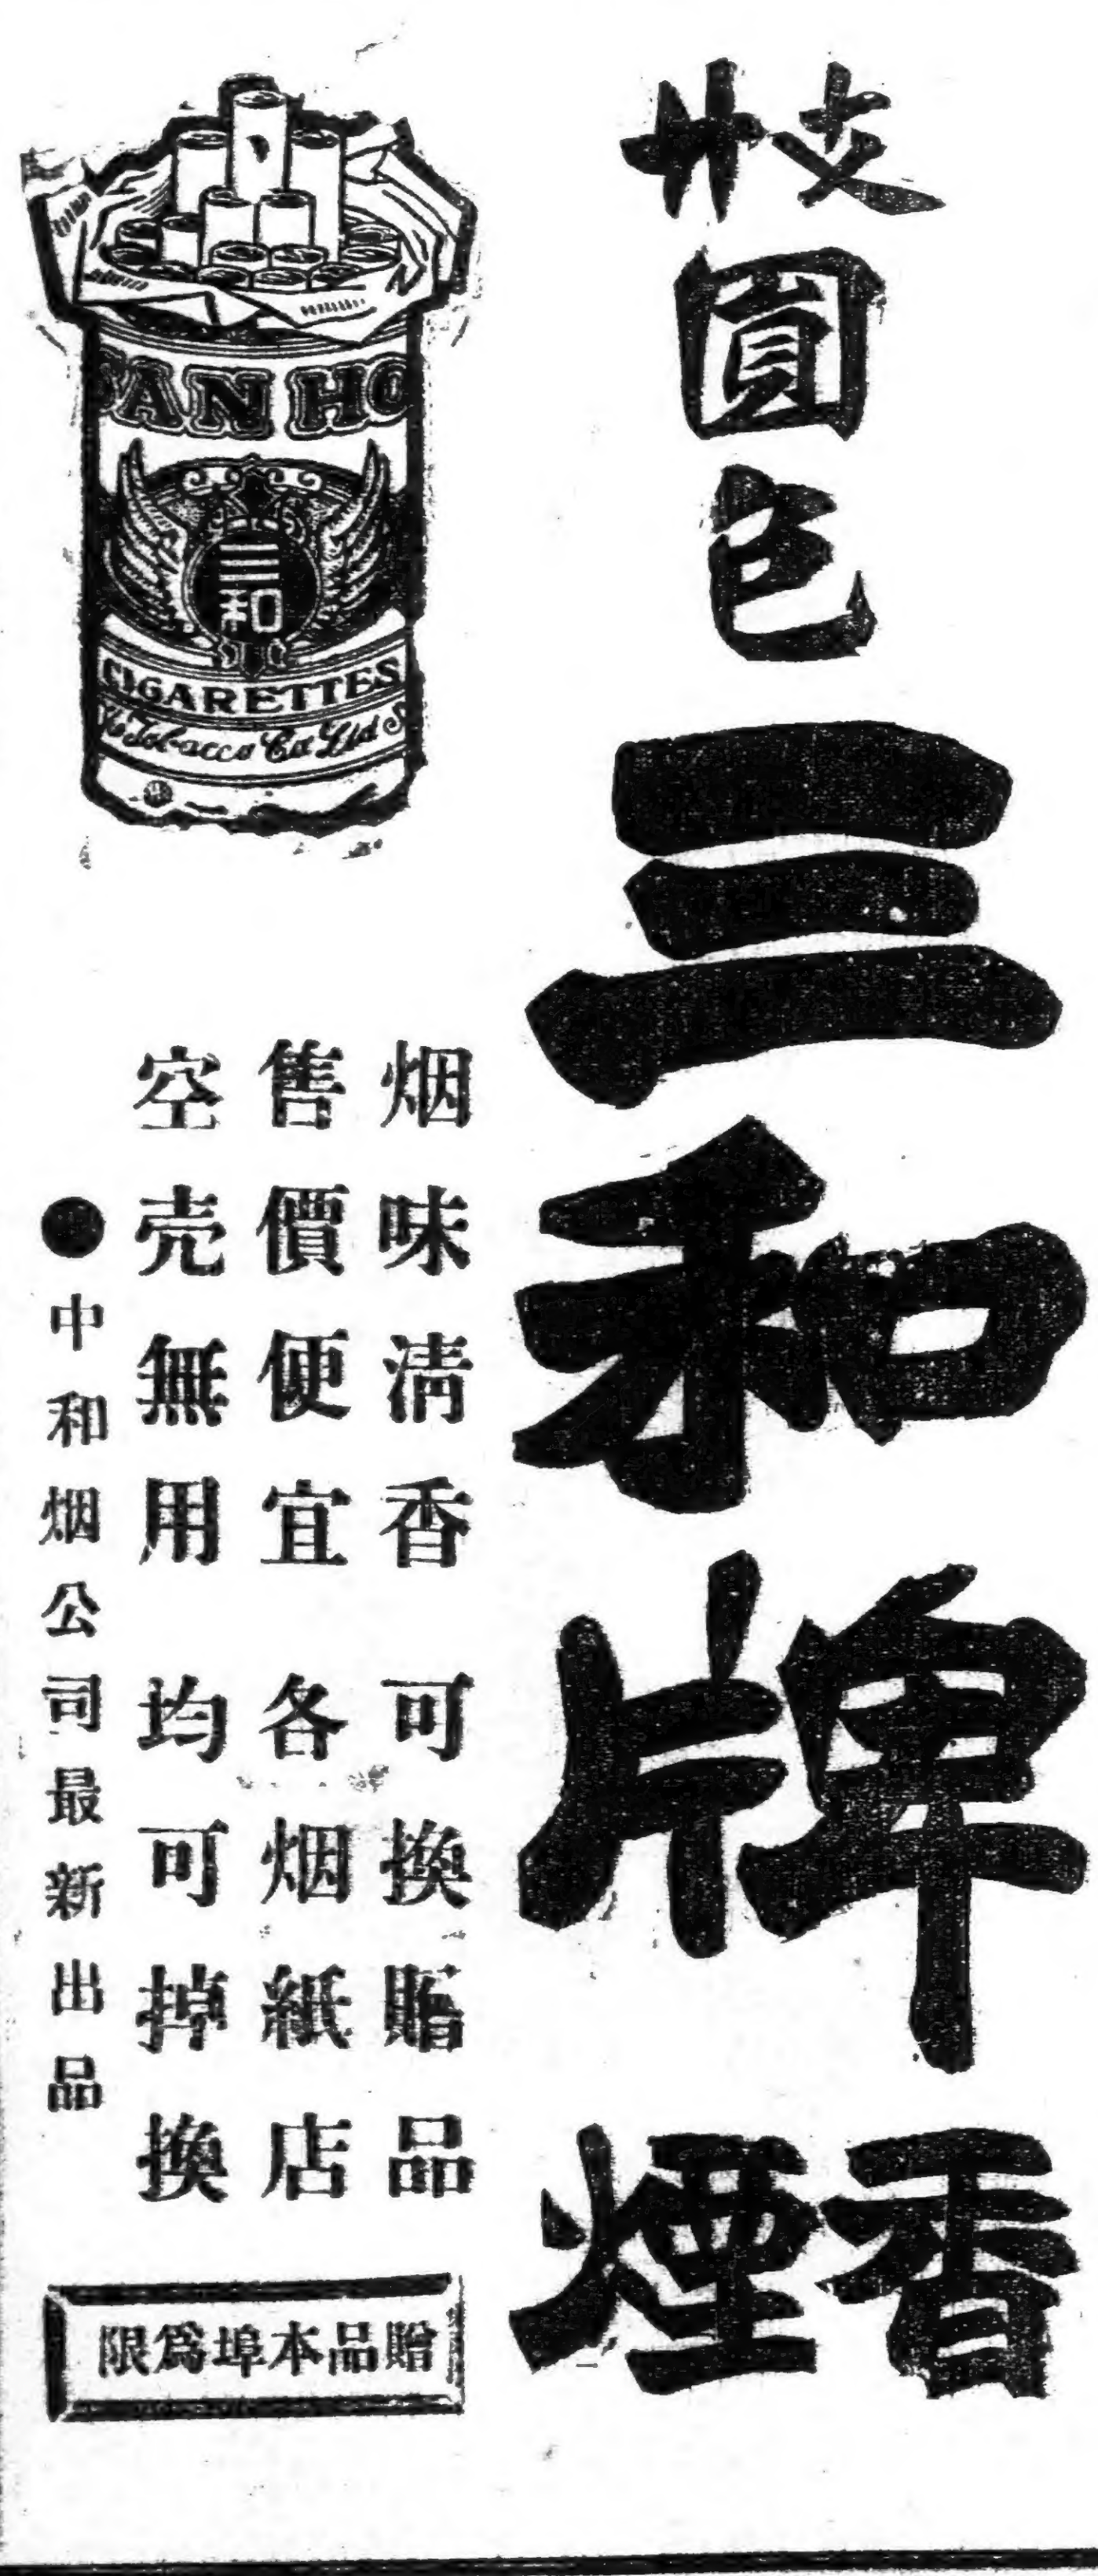 廿支
圓包
三和牌
香煙
烟味清香 可換贈品
售價便宜 各烟紙店
空壳無用 均可掉換
●中和烟公司最新出品
贈品本埠爲限
SAN HO
三和
CIGARETTES
Tobacco Co Ltd